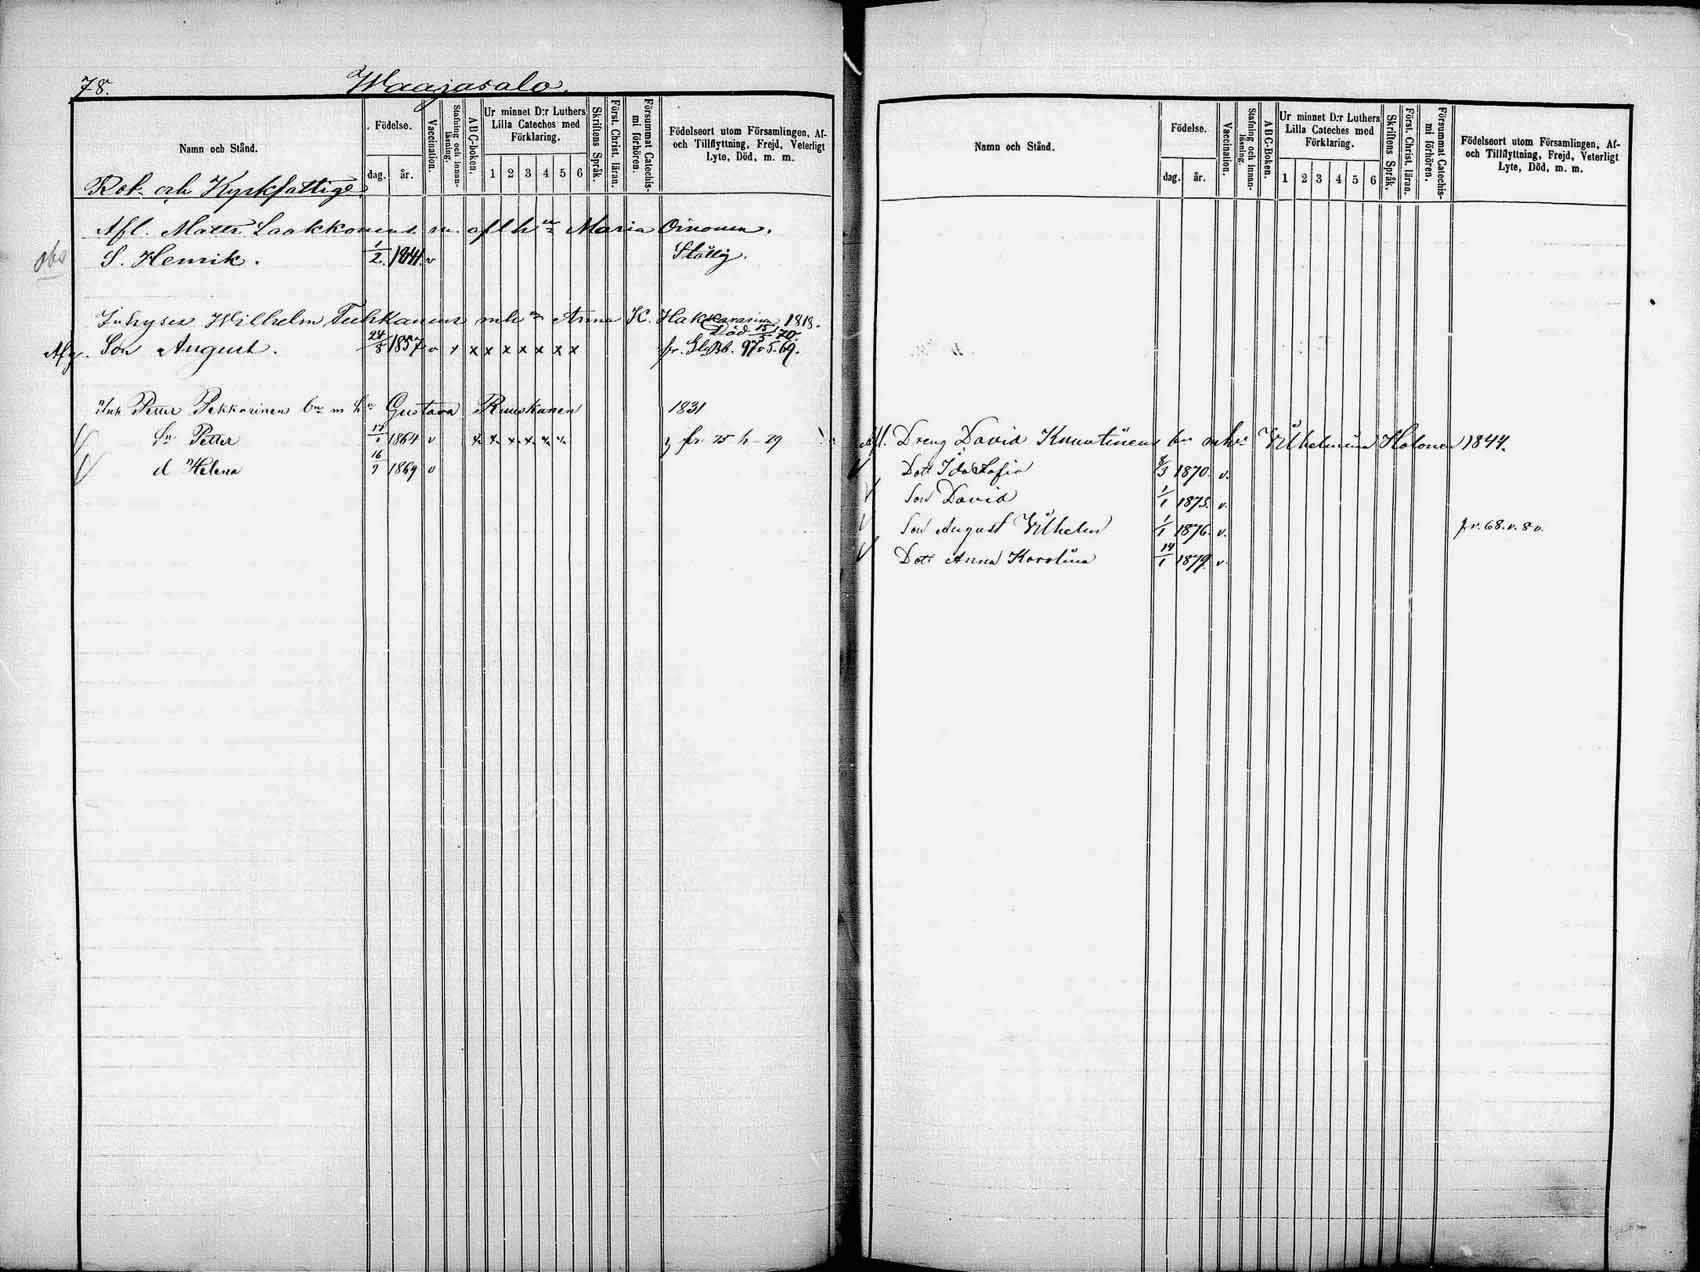 78. Waajasalo.
Namn och Stånd.
Födelse.
dag. år.
Vaccination.
Stafning och innan-
läsning.
ABC-boken.
Ur minnet D:r Luthers
Lilla Cateches med
Förklaring.
1 2 3 4 5 6
Skriftens Språk.
Först. Christ. läran.
Försummat Catechis-
mi förhören.
Födelseort utom Församlingen, Af-
och Tillflyttning, Frejd, Veterligt
Lyte, Död, m. m.
Rot- och Kyrkfattige.
Afl. Matts Laakkonens m. afl h Maria Oinonen.
obs S. Henrik. 1/2 1841 v
Inhyses Wilhelm Tuhkanens m h Anna K. Hakkarainen 1818.
Död 15/5 70.
Son August. 24/8 1857 v x x x x x x x x fr. 97 v 5. 69.
Inh Petter Pekkarinens m h Gustava Ruuskanen 1831
Sn Petter 17/1 1864 v x x x x x x fr 25 h 79
d Helena 16/7 1869 v
Namn och Stånd.
Födelse.
dag. år.
Vaccination.
Stafning och innan-
läsning.
ABC-Boken.
Ur minnet D:r Luthers
Lilla Cateches med
Förklaring.
1 2 3 4 5 6
Skriftens Språk.
Först. Christ. läran.
Försummat Catechis-
mi förhören.
Födelseort utom Församlingen, Af-
och Tillflyttning, Frejd, Veterligt
Lyte, Död, m. m.
Afl. Dreng David Knuutinens Vilhelmina Holonen 1844.
Dott Ida Sofia 8/3 1870. v.
Son David 1/1 1873. v.
Son August Vilhelm 1/1 1876. v. fr. 68. v. 80.
Dott Anna Karolina 14/1 1879. v.